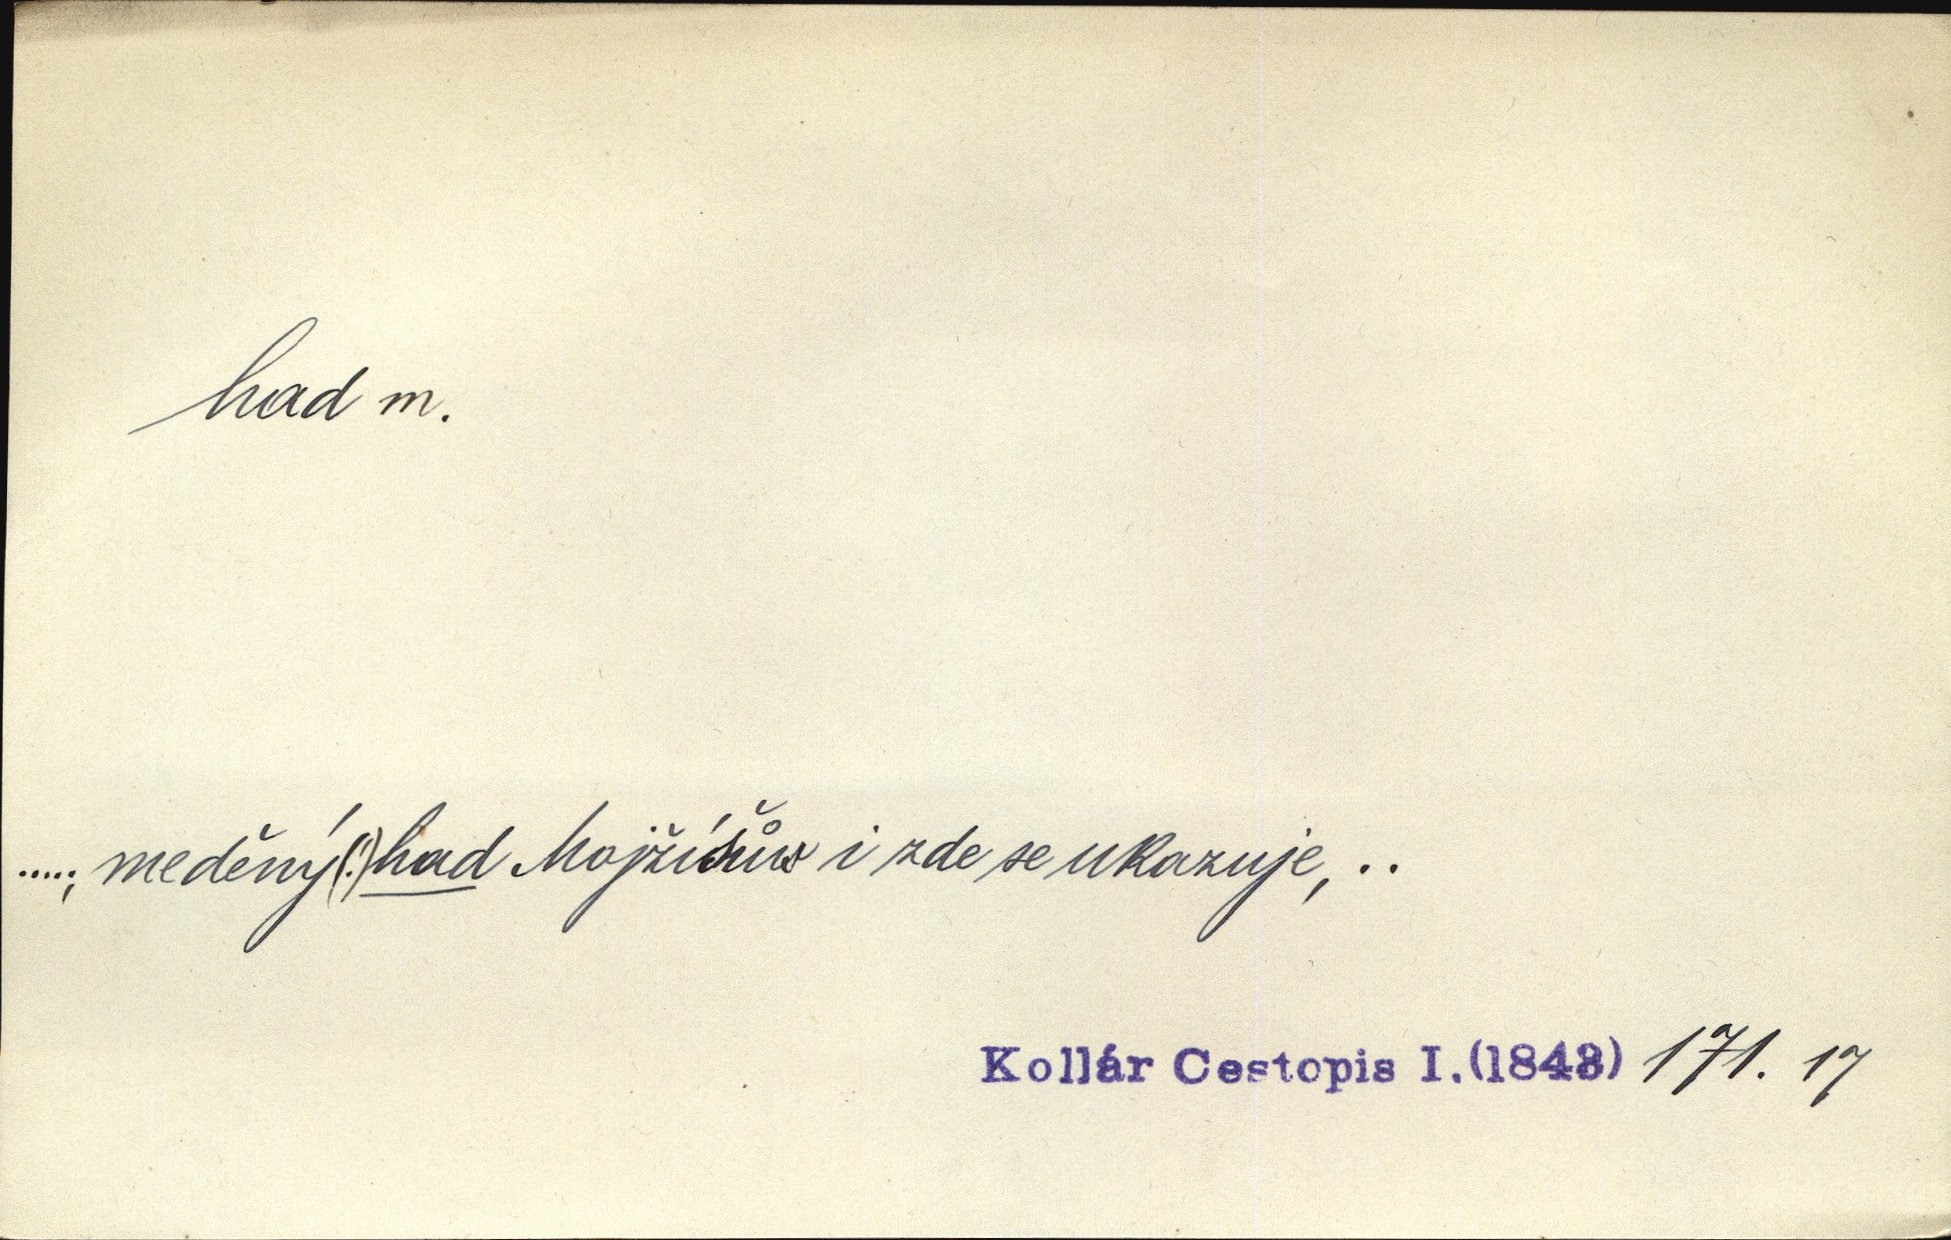 had m.
.....; meděný(!) had Mojžíšůw i zde se ukazuje, ..
Kollár Cestopis I.(1843) 171. 17